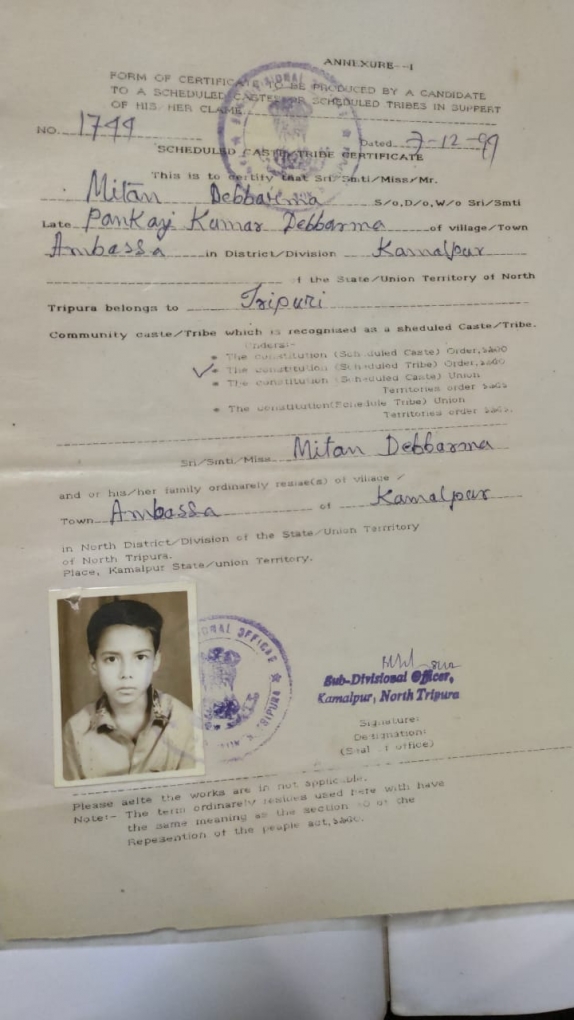 ANNEXURE--I
FORM OF CERTIFICATE TO BE PRODUCED BY A CANDIDATE
TO A SCHEDULED CASTES OR SCHEDULED TRIBES IN SUPPERT
OF HIS HER CLAME
NO. 1744
Dated 7-12-99
SCHEDULED CASTE/TRIBE CERTIFICATE
This is to certify that Sri/Smti/Miss/Mr.
Mitan Debbarma S/o,D/o,W/o Sri/Smti
Late Pankaj Kumar Debbarma of village/Town
Ambassa in District/Division Kamalpur
f the State/Union Territory of North
Tripura belongs to Tripuri
Community caste/Tribe which is recognised as a sheduled Caste/Tribe.
Unders:-
The constitution (Scheduled Caste) Order,
The constitution (Scheduled Tribe) Order,
The constitution (Scheduled Caste) Union
Territories order
The constitution(Schedule Tribe) Union
Territories order
Sri/Smti/Miss Mitan Debbarma
and or his/her family ordinarely reside(s) of village /
Town Ambassa of Kamalpur
in North District/Division of the State/Union Terrtitory
of North Tripura.
Place, Kamalpur State/union Territory.
Sub-Divisional Officer,
Kamalpur, North Tripura
Signature:
Designation:
(Seal of office)
Please delte the works are in not applicable.
Note:- The term ordinarely resides used here with have
the same meaning as the section of the
Repesention of the people act,